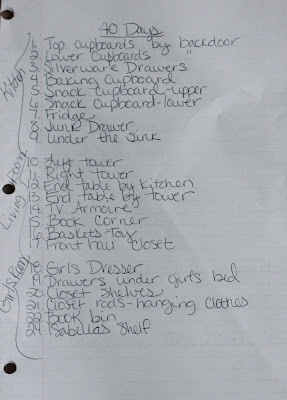 40 Days
Kitchen
1. Top cupboards by backdoor
2. Lower Cupboards "
3. Silverware Drawers
4. Baking Cupboard
5. Snack cupboard-upper
6. Snack Cupboard-lower
7. Fridge
8. Junk Drawer
9. Under the Sink
Living Room
10. Left tower
11. Right Tower
12. End table by Kitchen
13. End table by tower
14. TV Armoire
15. Book Corner
16. Baskets-Toy
17. Front hall Closet
Girls Room
18. Girls Dresser
19. Drawers under girls bed
20. Closet Shelves
21. Closet rods-hanging clothes
22. Book bin
Isabella's Shelf